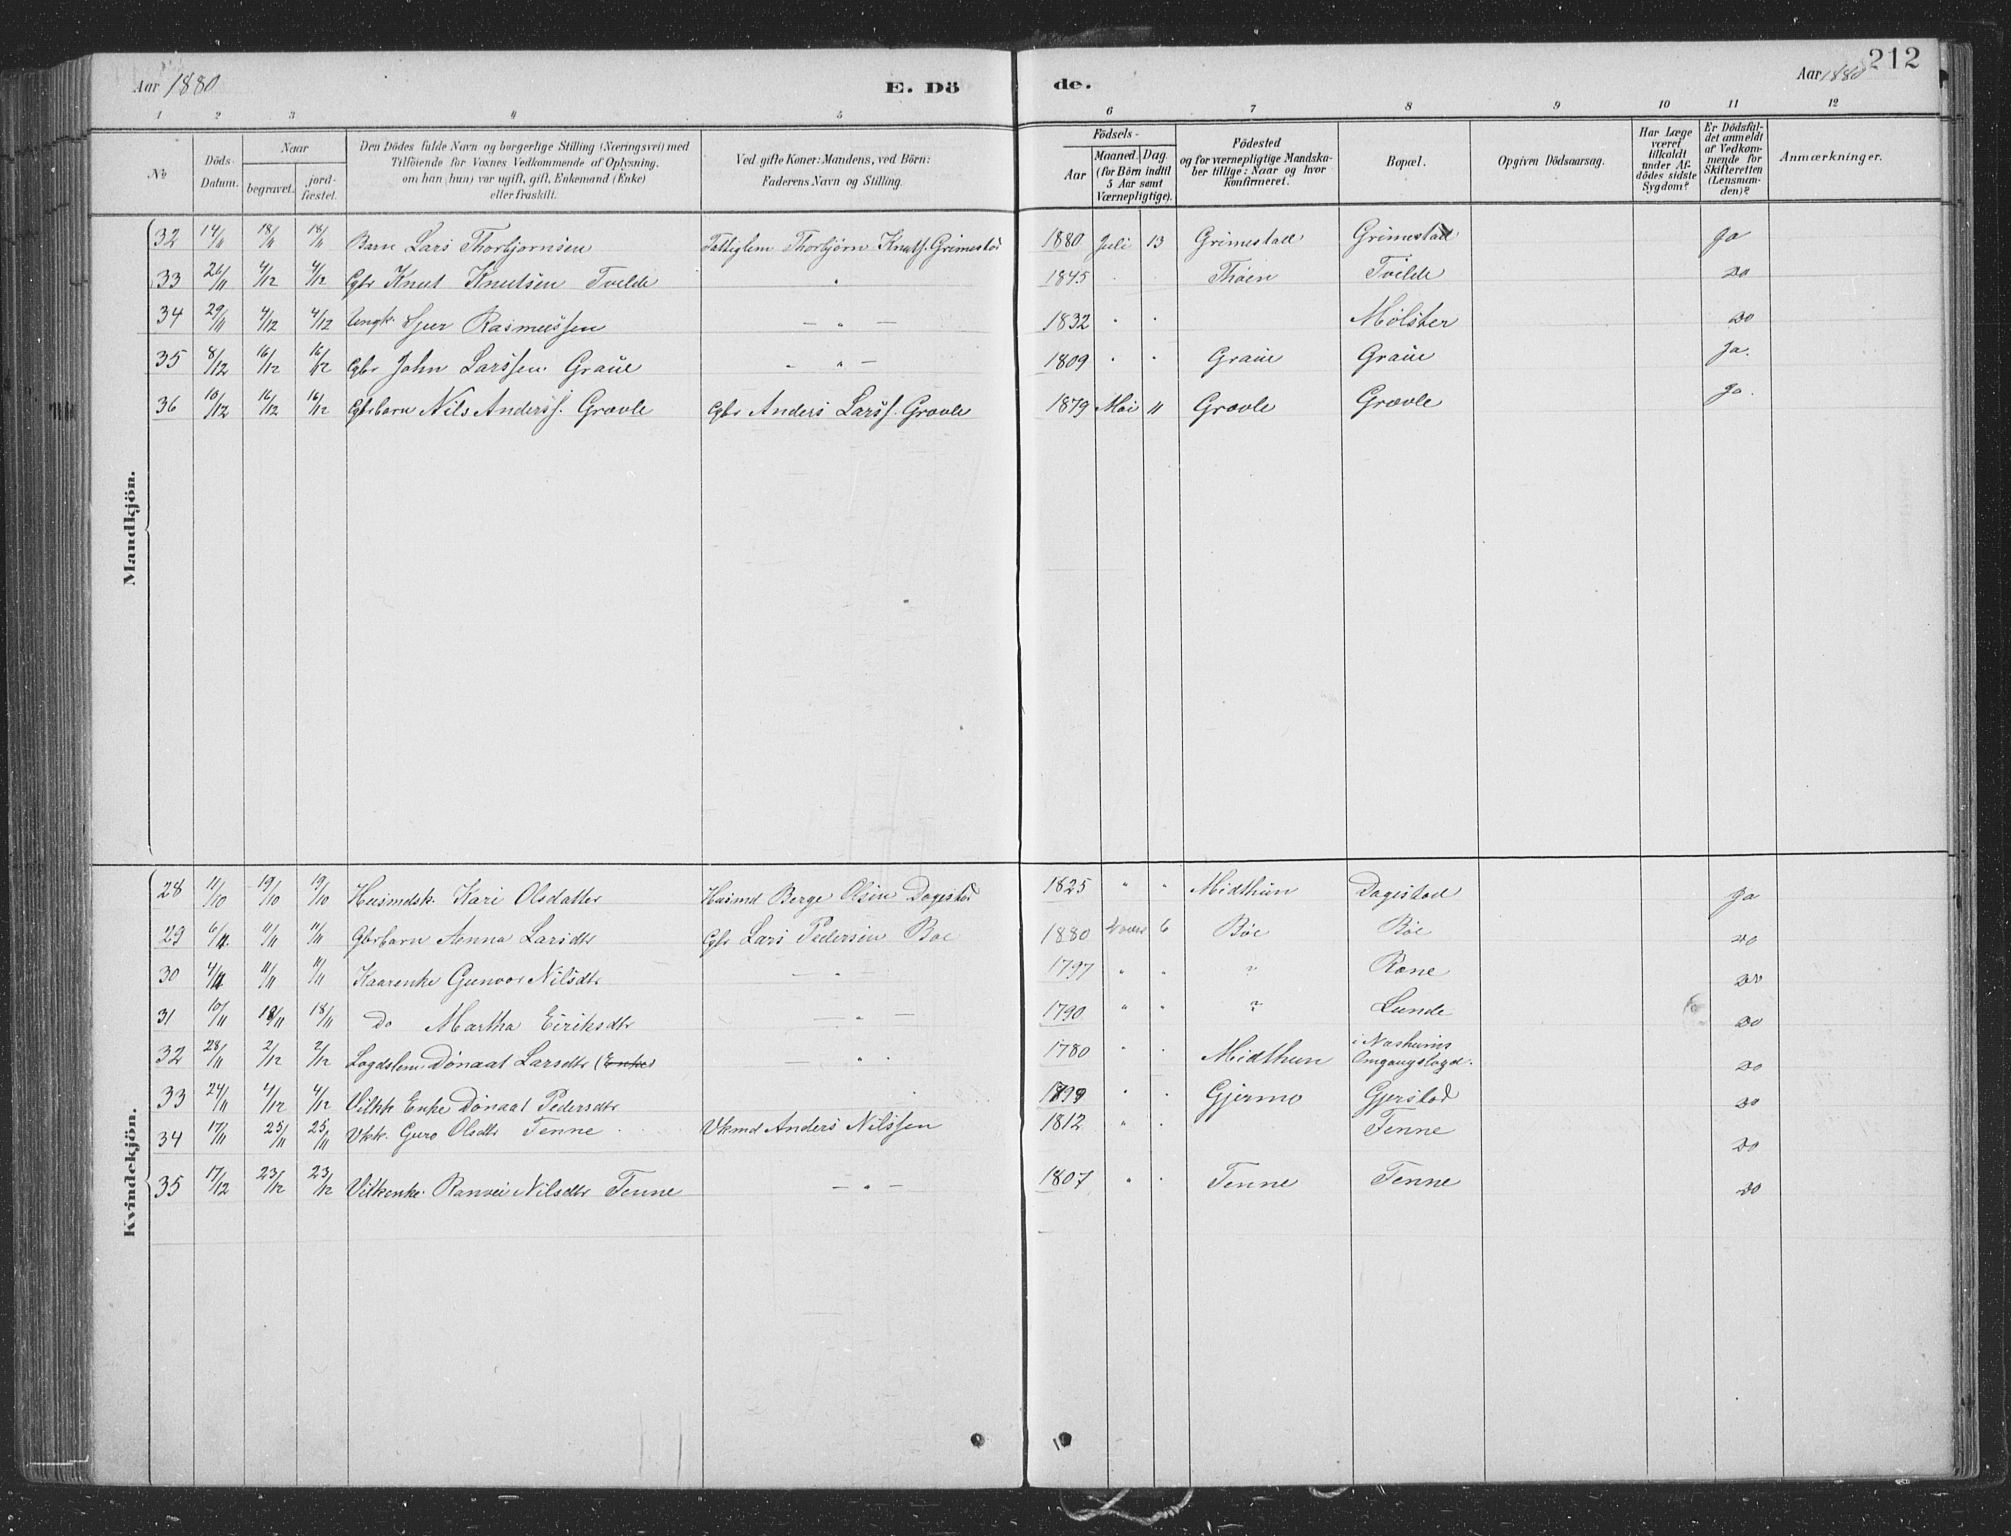 Aar 1880
E. Dö
de.
Aar 1880
212
1 2 3 4 5 6 7 8 9 10 11 12
No
Döds-Datum.
Naar
begravet.
jord-fæstet.
Den Dödes fulde Navn og borgerlige Stilling (Næringsvei) med
Tilföiende for Voxnes Vedkommende af Oplysning,
om han (hun) var ugift, gift, Enkemand (Enke)
eller fraskilt.
Ved gifte Koner: Mandens, ved Börn:
Faderens Navn og Stilling.
Födsels-
Aar
Maaned. Dag
(for Börn indtil
5 Aar samt
Værnepligtige).
Födested
og for værnepligtige Mandska-
ber tillige: Naar og hvor
konfirmeret.
Bopæl.
Opgiven Dödsaarsag.
Har Læge
været
tilkaldt
under Af-
dödes sidste
Sygdom?
Er Dödsfal-
det anmeldt
af Vedkom-
mende for
Skifteretten
(Lensman-
den)?
Anmærkninger.
Mandkjön.
32 14/11 18/11 18/11 Barn Lars Thorbjørnsen Fattiglem Thorbjørn Knuts. Grimestad 1880 Juli 13 Grimestad Grimestad Ja
33 26/11 4/12 4/12 Gbr Knut Knutsen Tvilde " 1845 Thøen Tvilde Do
34 29/11 4/12 4/12 Ungk. Sjur Rasmussen — " — 1832 Mølster Do
35 8/12 16/12 16/12 Gbr John Larssen Graue — " — 1809 Graue Graue Ja.
36 10/12 16/12 16/12 Gbrbarn Nils Anderss. Grovle Gbr Anders Larss. Grovle 1879 Mai 11 Grovle Grovle Ja.
Kvindekjön.
28 11/10 19/10 19/10 Husmdsk. Kari Olsdatter Husmd Berge Olsen Dagestad 1825 " " Midthun Dagestad Ja
29 6/11 11/11 11/11 Gbrbarn Anna Larsdtr Gbr Lars Pedersen Bøe 1880 6 Bøe Bøe Do
30 4/11 11/11 11/11 Kaarenke Gunvor Nilsdtr — " — 1797 " " ? Rone Do
31 10/11 18/11 18/11 Do Martha Eiriksdtr — " — 1790 " " ? Lunde Do
32 28/11 2/12 2/12 Lægdslem Dønaat Larsdtr (Enke) — " 1780 " Midthun i Omgangslægd. Do
33 24/11 4/12 4/12 Vilkk Enke Dønaat Pedersdtr 1799 " Gjermo Gjerstad Do
34 17/11 25/11 25/11 Vkk. Guro Olsdtr Tenne Vkmd Anders Nilssen 1812 " Tenne Do
35 17/12 23/12 23/12 Vilkenke. Ranvei Nilsdtr Tenne — " — 1807 " Tenne Tenne Do